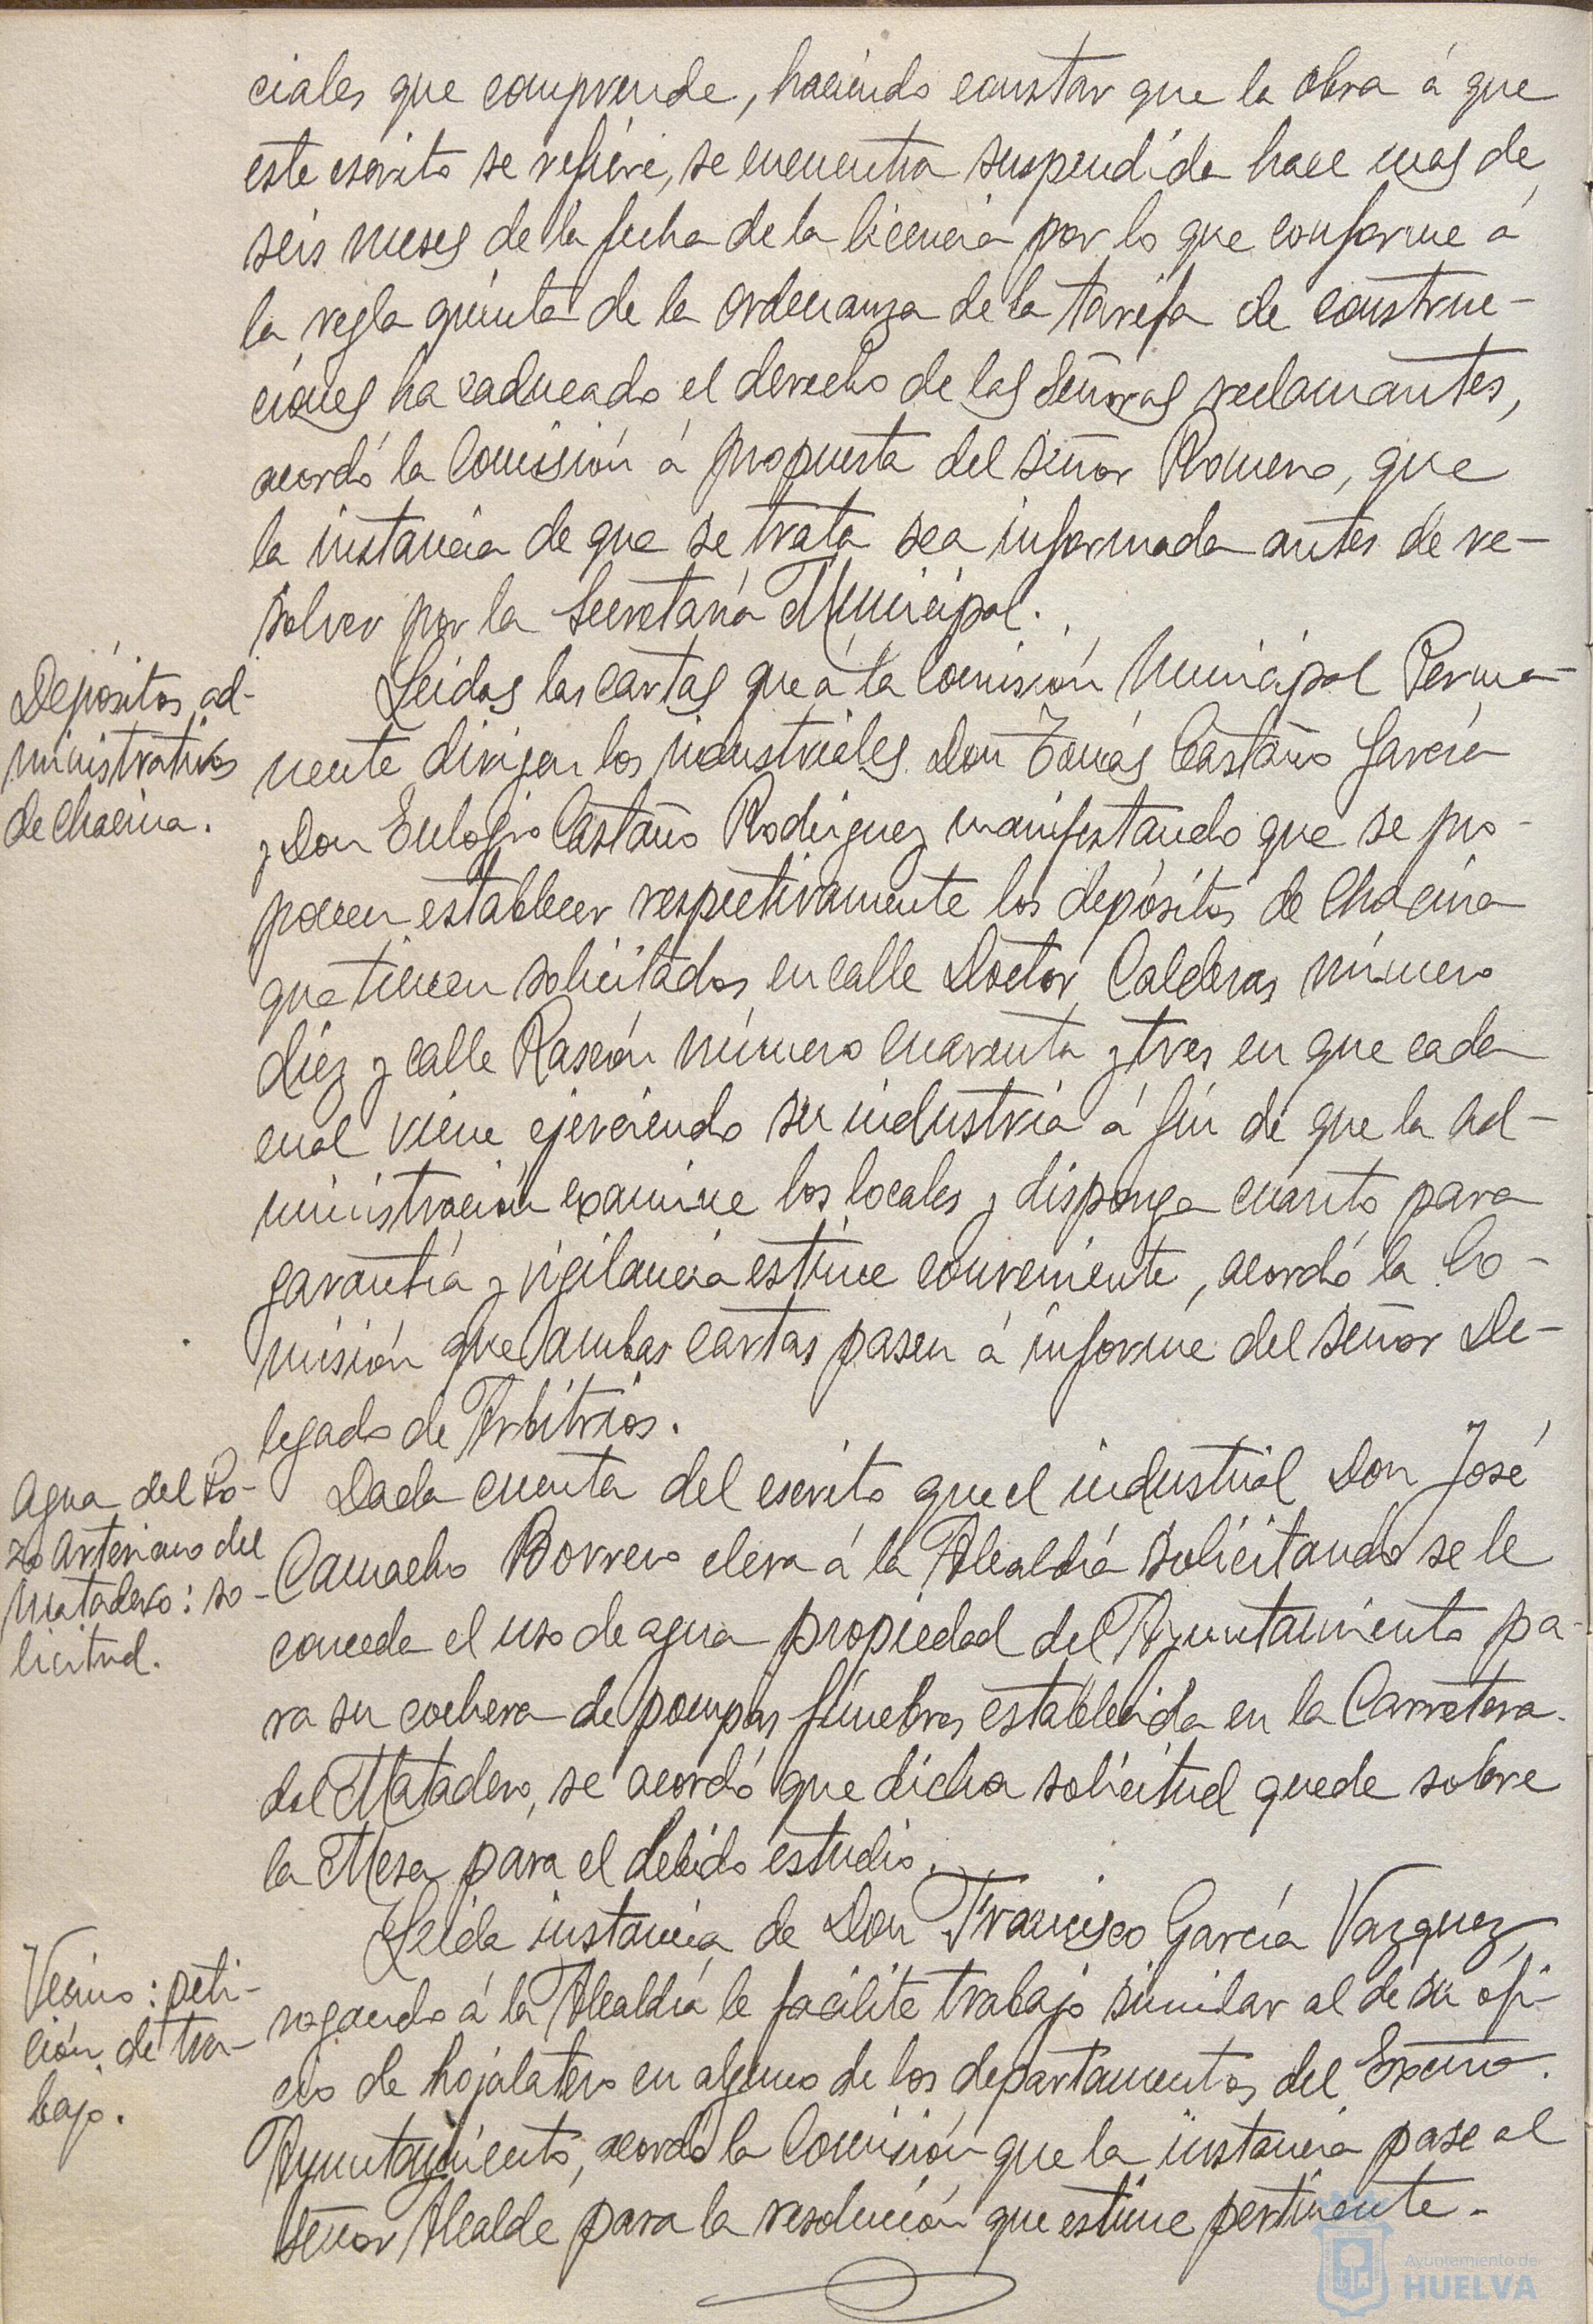 ciales que comprende, haciendo constar que la obra á que
este escrito se refiere, se encuentra suspendida hace mas de
seis meses de la fecha de la licencia por lo que conforme á
la regla quinta de la Ordenanza de la tarifa de construc-
ciones ha caducado el derecho de las Señoras reclamantes,
acordó la Comisión á propuesta del señor Romero, que
la instancia de que se trata sea informada antes de re-
solver por la Secretaría Municipal.
Depósitos ad-
ministrativos
de Chacina.
Leidas las cartas que á la Comisión Municipal Perma-
nente dirigen los industriales Don Tomás Castaño García
y Don Eulogio Castaño Rodriguez manifestando que se pro-
ponen establecer respectivamente los depósitos de Chacina
que tienen solicitados en calle Doctor Calderas número
diez y calle Rascón número cuarenta y tres en que cada
cual viene ejerciendo su industria á fin de que la Ad-
ministración examine los locales y disponga cuanto para
garantía y vigilancia estime conveniente, acordó la Co-
misión que ambas cartas pasen á informe del señor De-
legado de Arbitrios.
Agua del Po-
zo Artesiano del
Matadero: so-
licitud.
Dada cuenta del escrito que el industrial Don José
Camacho Borrero eleva á la Alcaldía solicitando se le
conceda el uso de agua propiedad del Ayuntamiento pa-
ra su cochera de pompas fúnebres establecida en la Carretera
del Matadero, se acordó que dicha solicitud quede sobre
la Mesa para el debido estudio.
Vecino: peti-
ción de tra-
bajo.
Leida instancia de Don Francisco García Vazquez
rogando á la Alcaldía le facilite trabajo similar al de su ofi-
cio de hojalatero en alguno de los departamentos del Excmo.
Ayuntamiento, acordó la Comisión que la instancia pase al
señor Alcalde para la resolución que estime pertinente.-
Ayuntamiento de
HUELVA